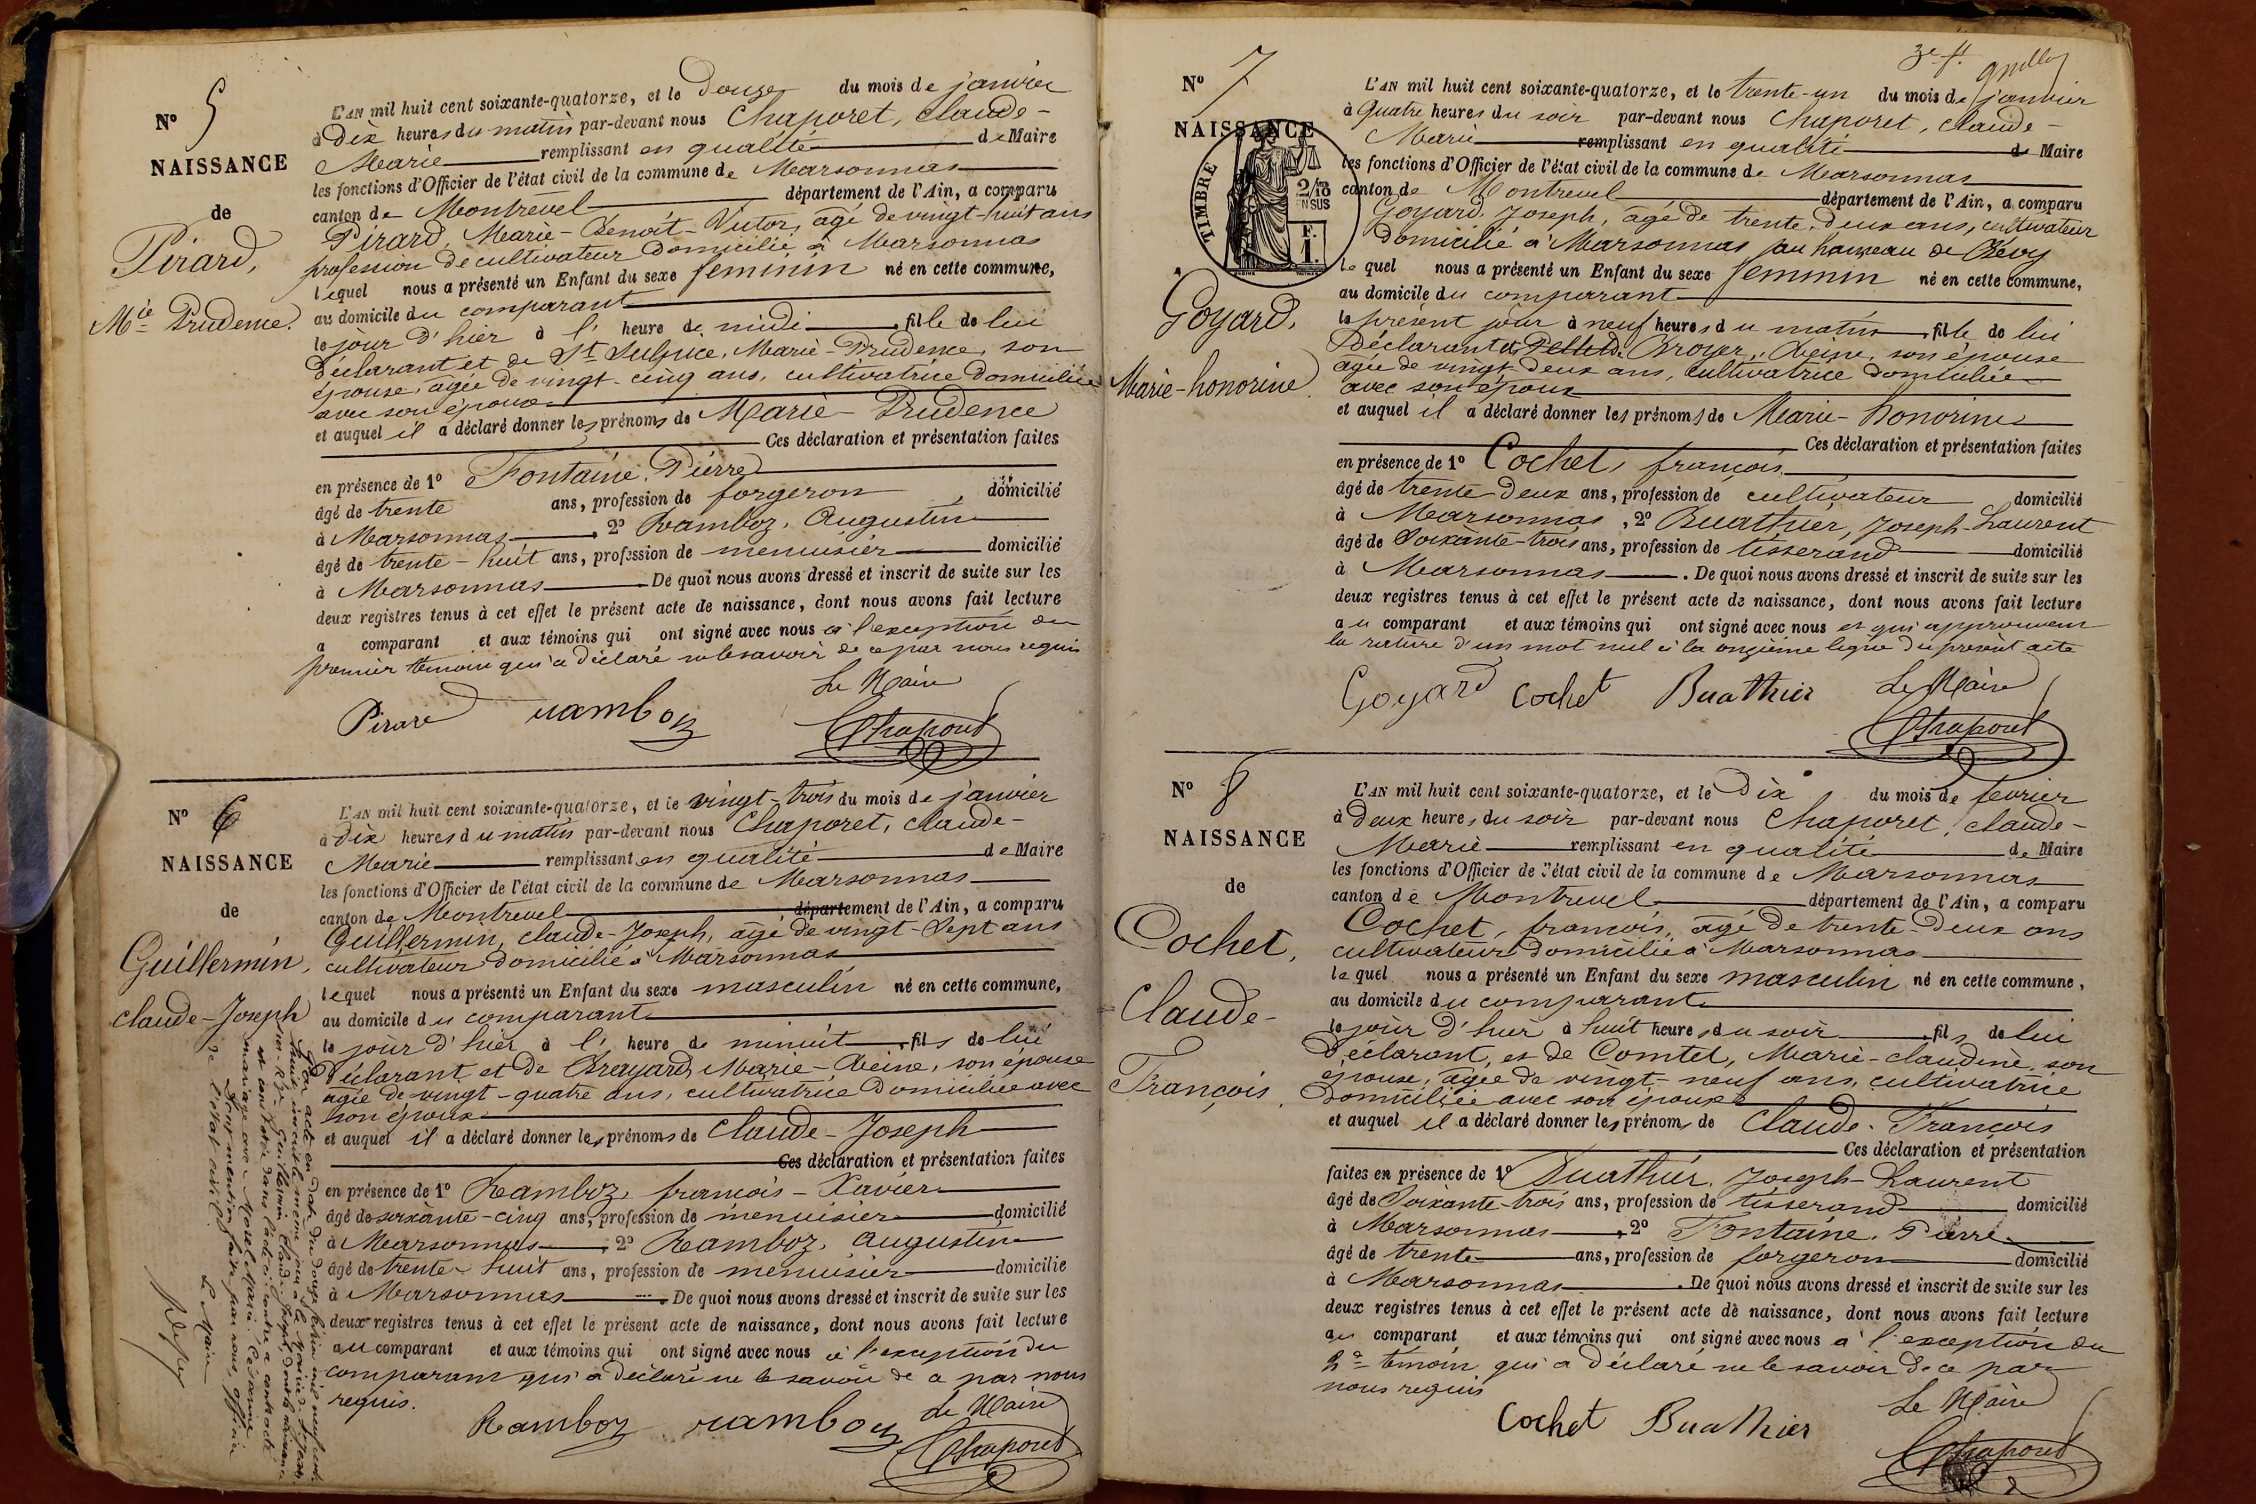 Nº 5
NAISSANCE
de
Pirard,
Mie Prudence.
L'AN mil huit cent soixante-quatorze, et le Douze du mois de janvier
à Dix heures du matin par-devant nous Chaporet, Claude-
Marie remplissant en qualité de Maire
les fonctions d'Officier de l'état civil de la commune de Marsonnas
canton de Montrevel département de l'Ain, a comparu
Pirard, Marie-Benoit-Victor, âgé de vingt-huit ans
profession de cultivateur domicilié à Marsonnas
lequel nous a présenté un Enfant du sexe feminin né en cette commune,
au domicile du comparant
le jour d'hier à l' heure de midi, fille de lui
Déclarant et de St Sulpice, Marie-Prudence, son
épouse, âgée de vingt-cinq ans, cultivatrice domiciliée
avec son époux
et auquel il a déclaré donner les prénoms de Marie-Prudence
Ces déclaration et présentation faites
en présence de 1º Fontaine, Pierre
âgé de trente ans, profession de forgeron, domicilié
à Marsonnas, 2º Ramboz, Augustin
âgé de trente-huit ans, profession de menuisier domicilié
à Marsonnas De quoi nous avons dressé et inscrit de suite sur les
deux registres tenus à cet effet le présent acte de naissance, dont nous avons fait lecture
a comparant et aux témoins qui ont signé avec nous à l'exception du
premier témoin qui a déclaré ne le savoir de ce par nous requis
Le Maire
Pirard ramboz Chaporet
Nº 6
NAISSANCE
de
Guillermin,
claude-Joseph
L'AN mil huit cent soixante-quatorze, et le vingt-trois du mois de janvier
à Dix heures du matin par-devant nous Chaporet, claude-
Marie remplissant en qualité de Maire
les fonctions d'Officier de l'état civil de la commune de Marsonnas
canton de Montrevel département de l'Ain, a comparu
Guillermin, claude-Joseph, âgé de vingt-sept ans
cultivateur domicilié à Marsonnas
lequel nous a présenté un Enfant du sexe masculin né en cette commune,
au domicile du comparant
le jour d'hier à l' heure de minuit, fils de lui
Déclarant et de Brayard, Marie-Reine, son épouse
âgée de vingt-quatre ans, cultivatrice domiciliée avec
son époux
et auquel il a déclaré donner les prénoms de Claude-Joseph
Ces déclaration et présentation faites
en présence de 1º Ramboz, françois-Xavier
âgé de soixante-cinq ans, profession de menuisier domicilié
à Marsonnas, 2º Ramboz, augustin
âgé de trente-huit ans, profession de menuisier domicilié
à Marsonnas. De quoi nous avons dressé et inscrit de suite sur les
deux registres tenus à cet effet le présent acte de naissance, dont nous avons fait lecture
au comparant et aux témoins qui ont signé avec nous à l'exception du
comparant qui a déclaré ne le savoir de ce par nous
requis.
Le Maire
Ramboz ramboz Chaporet
Par acte en date du douze février mil neuf cent
huit, inscrit le même jour à la mairie de
Guillermin Claude-Joseph dont la naissance
est constatée dans l'acte ci-contre a contracté
mariage avec Morel Marie
Dont mention faite par nous, officier
de l'état civil.
Le Maire
Nº 7
NAISSANCE
TIMBRE
2/10 EN SUS
F. 1.
Goyard,
Marie-honorine.
3e f.
L'AN mil huit cent soixante-quatorze, et le trente-un du mois de janvier
à quatre heures du soir par-devant nous Chaporet, claude-
Marie remplissant en qualité de Maire
les fonctions d'Officier de l'état civil de la commune de Marsonnas
canton de Montrevel département de l'Ain, a comparu
Goyard, Joseph, âgé de trente-deux ans, cultivateur
domicilié à Marsonnas au hameau de Chévy
lequel nous a présenté un Enfant du sexe feminin né en cette commune,
au domicile du comparant
le présent jour à neuf heures du matin, fille de lui
Déclarant et Broyer, Reine, son épouse
âgée de vingt-deux ans, cultivatrice domiciliée
avec son époux
et auquel il a déclaré donner les prénoms de Marie-honorine
Ces déclaration et présentation faites
en présence de 1º Cochet, françois
âgé de trente deux ans, profession de cultivateur domicilié
à Marsonnas, 2º Buathier, Joseph-Laurent
âgé de soixante-trois ans, profession de tisserand domicilié
à Marsonnas. De quoi nous avons dressé et inscrit de suite sur les
deux registres tenus à cet effet le présent acte de naissance, dont nous avons fait lecture
au comparant et aux témoins qui ont signé avec nous et qui approuvent
la rature d'un mot nul à la onzième ligne du présent acte
Le Maire
Goyard Cochet Buathier Chaporet
Nº 8
NAISSANCE
de
Cochet,
Claude-
François.
L'AN mil huit cent soixante-quatorze, et le Dix du mois de fevrier
à Deux heures du soir par-devant nous Chaporet, claude-
Marie remplissant en qualité de Maire
les fonctions d'Officier de l'état civil de la commune de Marsonnas
canton de Montrevel département de l'Ain, a comparu
Cochet, françois, âgé de trente-deux ans
cultivateur domicilié à Marsonnas
lequel nous a présenté un Enfant du sexe masculin né en cette commune,
au domicile du comparant
le jour d'hier à huit heures du soir, fils de lui
Déclarant, et de Comtet, Marie-claudine, son
épouse, âgée de vingt-neuf ans, cultivatrice
Domiciliée avec son époux
et auquel il a déclaré donner les prénoms de Claude-François
Ces déclaration et présentation
faites en présence de 1º Buathier, Joseph-Laurent
âgé de soixante-trois ans, profession de tisserand domicilié
à Marsonnas, 2º Fontaine, Pierre
âgé de trente ans, profession de forgeron domicilié
à Marsonnas. De quoi nous avons dressé et inscrit de suite sur les
deux registres tenus à cet effet le présent acte de naissance, dont nous avons fait lecture
au comparant et aux témoins qui ont signé avec nous à l'exception du
2e témoin qui a déclaré ne le savoir de ce par
nous requis
Le Maire
Cochet Buathier Chaporet